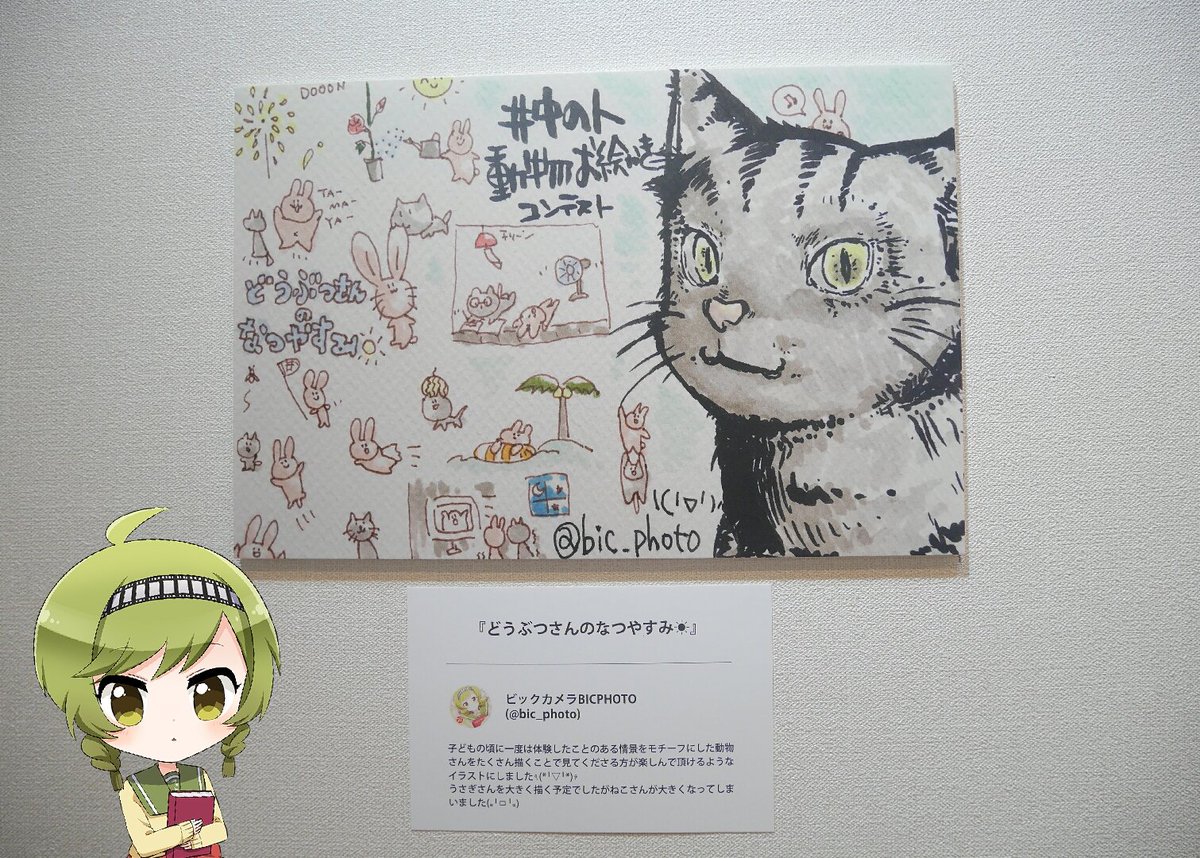 DOOON
#中のト
動物お絵かき
コンテスト
TA-
MA-
YA-
チリーン
どうぶつさん
の
なつやすみ
@bic_photo
『どうぶつさんのなつやすみ☀』
ビックカメラBICPHOTO
(@bic_photo)
子どもの頃に一度は体験したことのある情景をモチーフにした動物
さんをたくさん描くことで見てくださる方が楽しんで頂けるような
イラストにしました٩(*╹▽╹*)۶
うさぎさんを大きく描く予定でしたがねこさんが大きくなってしま
いました(｡╹ㅁ╹｡)